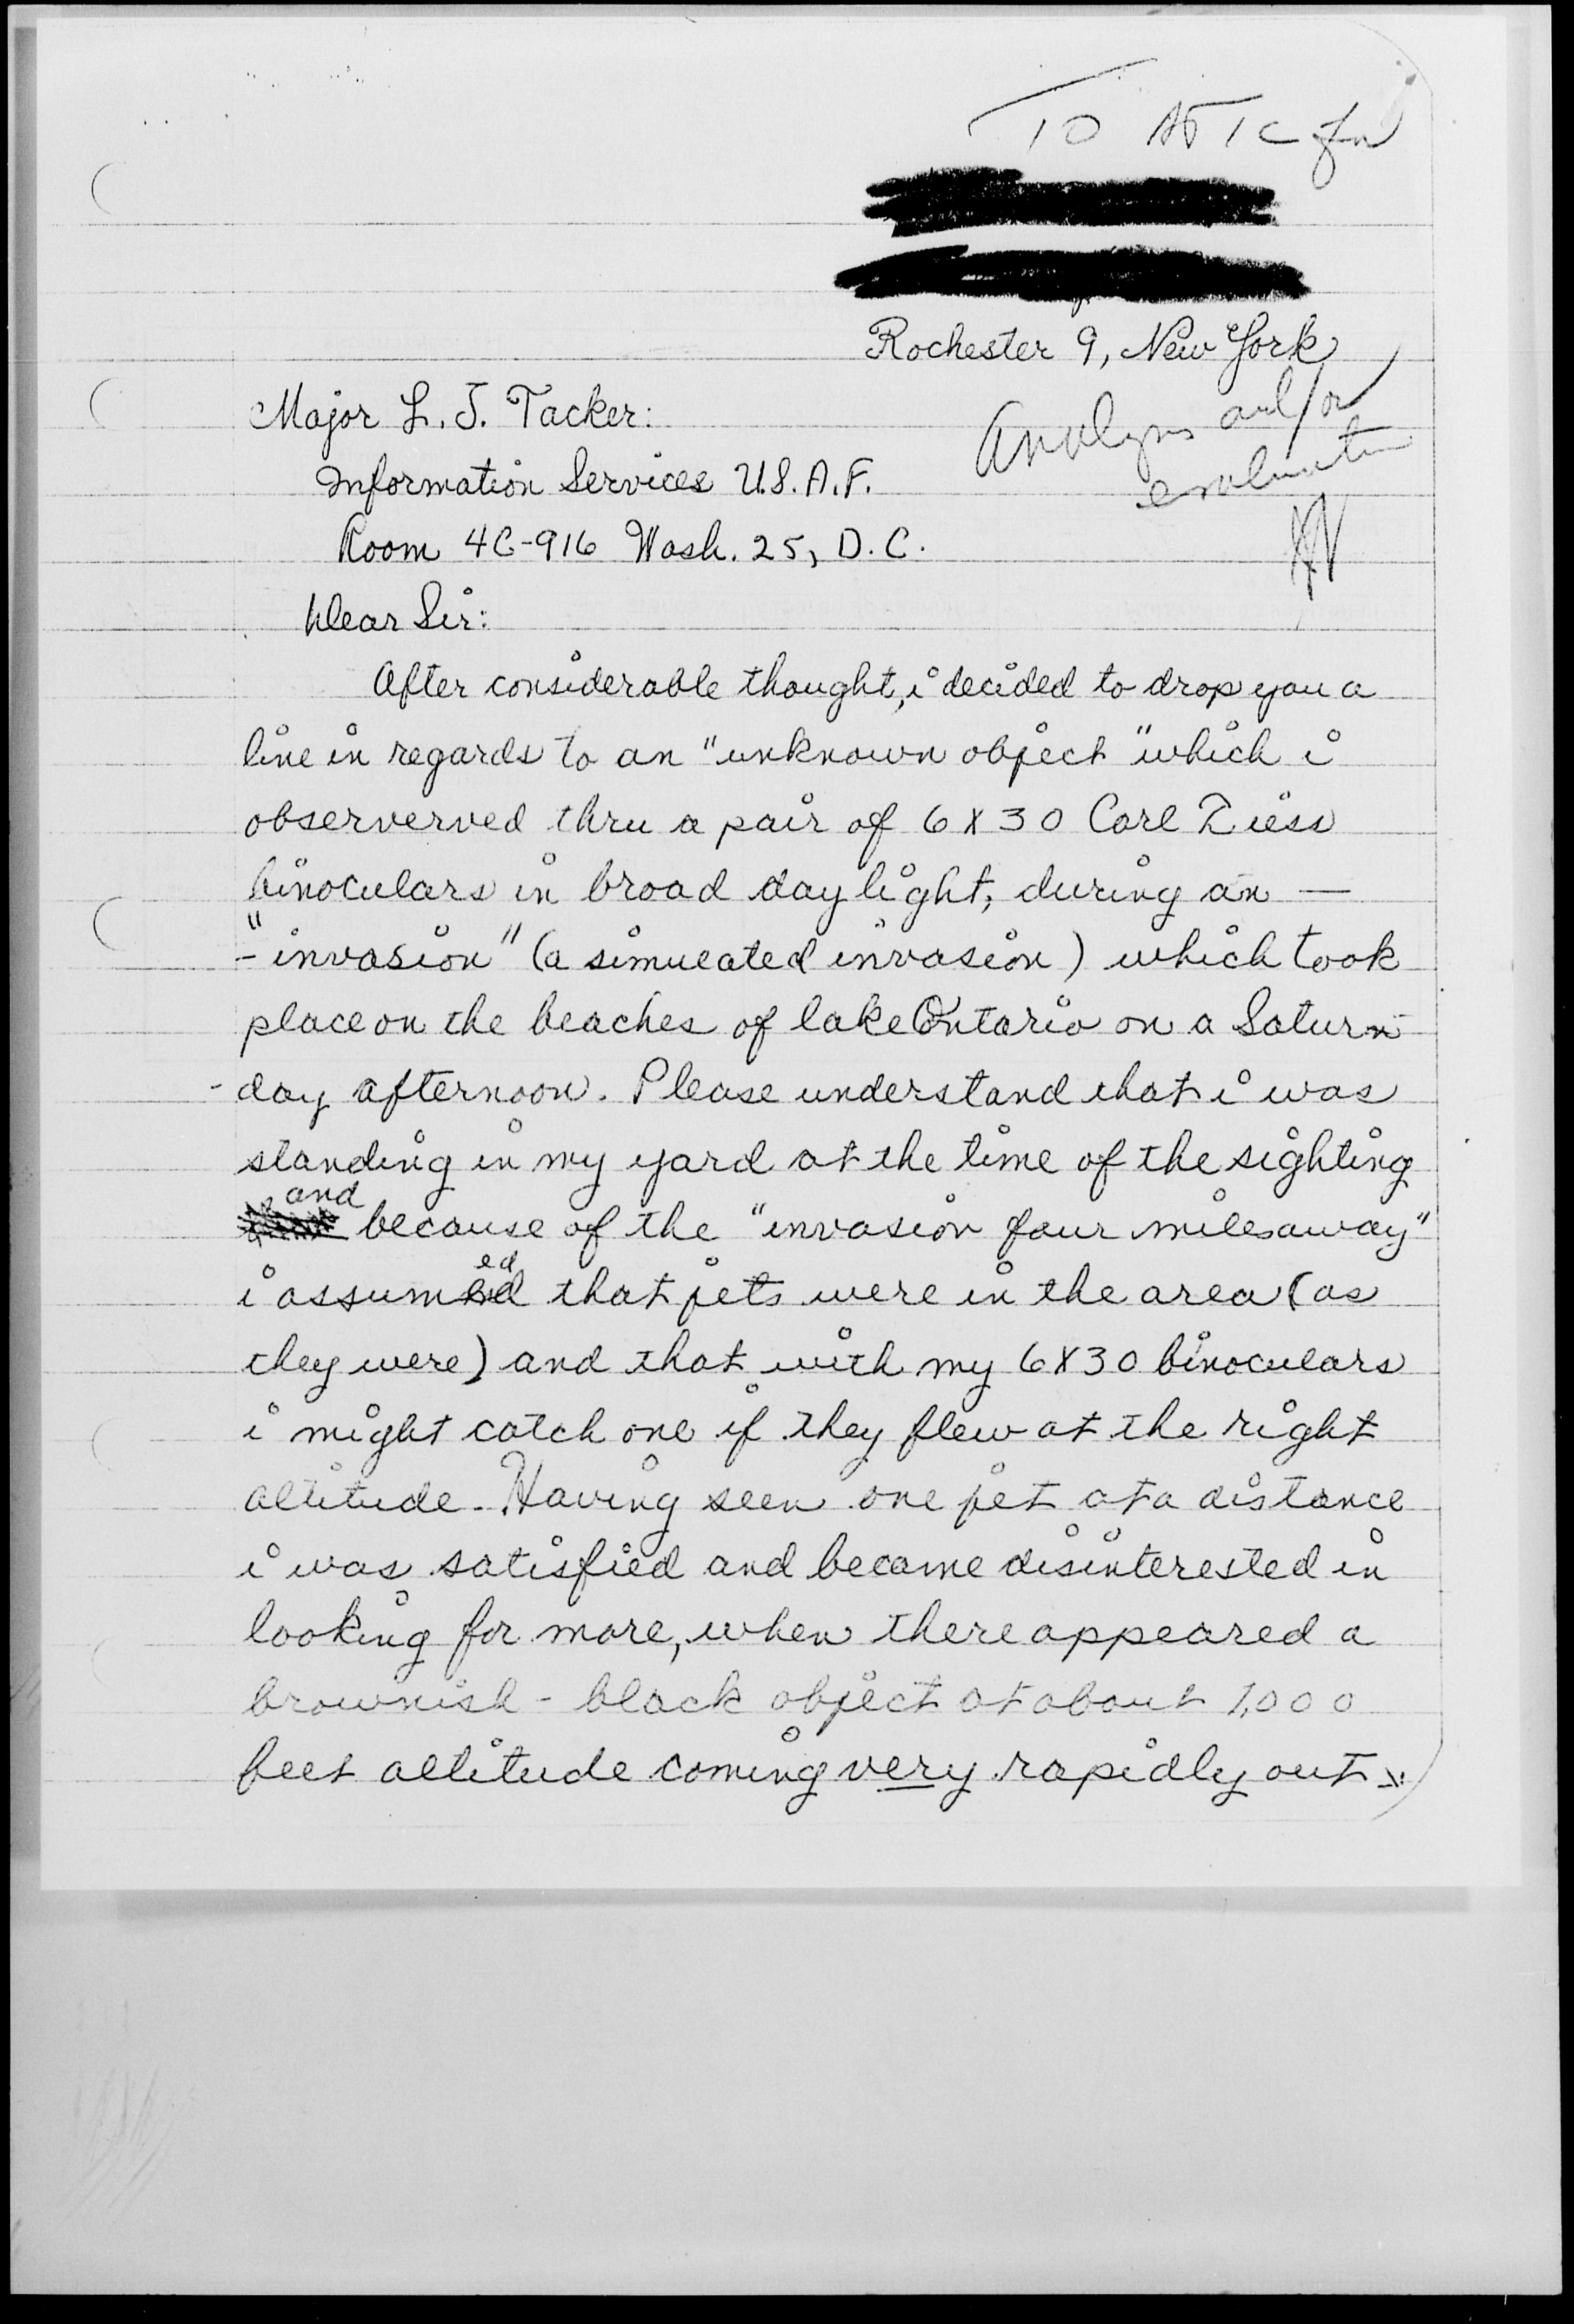 To ATIC for
Rochester 9, New York
Major L. J. Tacker:
Analysis and/or
evaluation
Information Services U.S.A.F.
Room 4C-916 Wash. 25, D.C.
Dear Sir:
After considerable thought, i decided to drop you a
line in regards to an "unknown object" which i
observerved thru a pair of 6X30 Carl Ziess
binoculars in broad daylight, during an —
- "invasion" (a simulated invasion) which took
place on the beaches of lake Ontario on a Satur-
- day afternoon. Please understand that i was
standing in my yard at the time of the sighting
and because of the "invasion four miles away"
i assumed that jets were in the area (as
they were) and that with my 6X30 binoculars
i might catch one if they flew at the right
altitude. Having seen one jet at a distance
i was satisfied and became disinterested in
looking for more, when there appeared a
brownish - black object at about 1,000
feet altitude coming very rapidly out